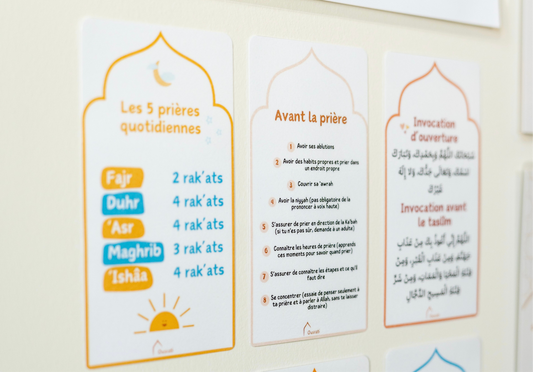 Les 5 prières
quotidiennes
Fajr 2 rak'ats
Duhr 4 rak'ats
'Asr 4 rak'ats
Maghrib 3 rak'ats
'Ishâa 4 rak'ats
Avant la prière
1 Avoir ses ablutions
2 Avoir des habits propres et prier dans
un endroit propre
3 Couvrir sa 'awrah
4 Avoir la niyyah (pas obligatoire de la
prononcer à voix haute)
5 S'assurer de prier en direction de la Ka'bah
(si tu n'es pas sûr, demande à un adulte)
6 Connaître les heures de prière (apprends
ces moments pour savoir quand prier)
7 S'assurer de connaître les étapes et ce qu'il
faut dire
8 Se concentrer (essaie de penser seulement à
ta prière et à parler à Allah, sans te laisser
distraire)
Invocation
d'ouverture
سُبْحَانَكَ اللَّهُمَّ وَبِحَمْدِكَ، وَتَبَارَكَ
اسْمُكَ، وَتَعَالَى جَدُّكَ، وَلَا إِلَهَ
غَيْرُكَ
Invocation avant
le taslîm
اللَّهُمَّ إِنِّي أَعُوذُ بِكَ مِنْ عَذَابِ
جَهَنَّمَ، وَمِنْ عَذَابِ الْقَبْرِ، وَمِنْ
فِتْنَةِ الْمَحْيَا وَالْمَمَاتِ، وَمِنْ شَرِّ
فِتْنَةِ الْمَسِيحِ الدَّجَّالِ